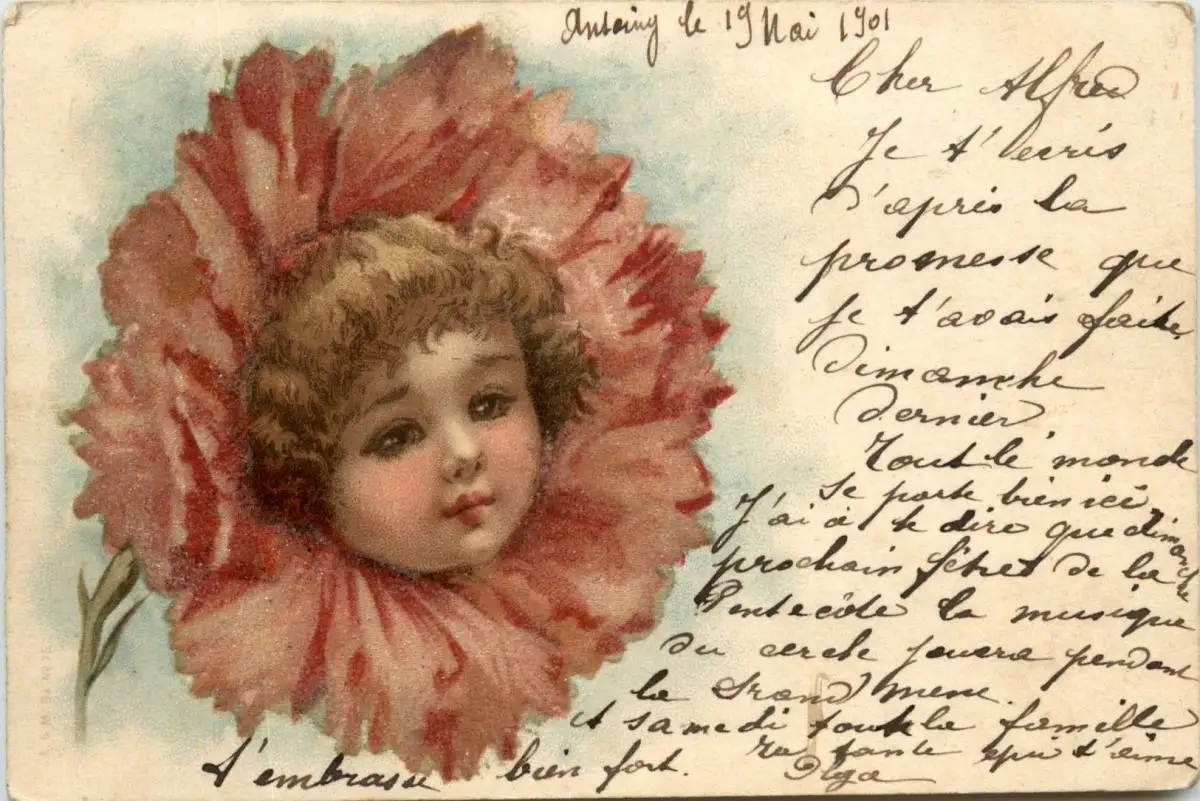 Antoing le 19 Mai 1901
Cher Alfred
Je t'ecris
d'après la
promesse que
je t'avais faite
Dimanche
dernier
Tout le monde
se porte bien ici
J'ai à te dire que dimanche
prochain fête de la
Pentecôte la musique
du cercle jouera pendant
la Grand' mene.
A samedi toute la famille
t'embrasse bien fort. Ta tante qui t'aime
Olga